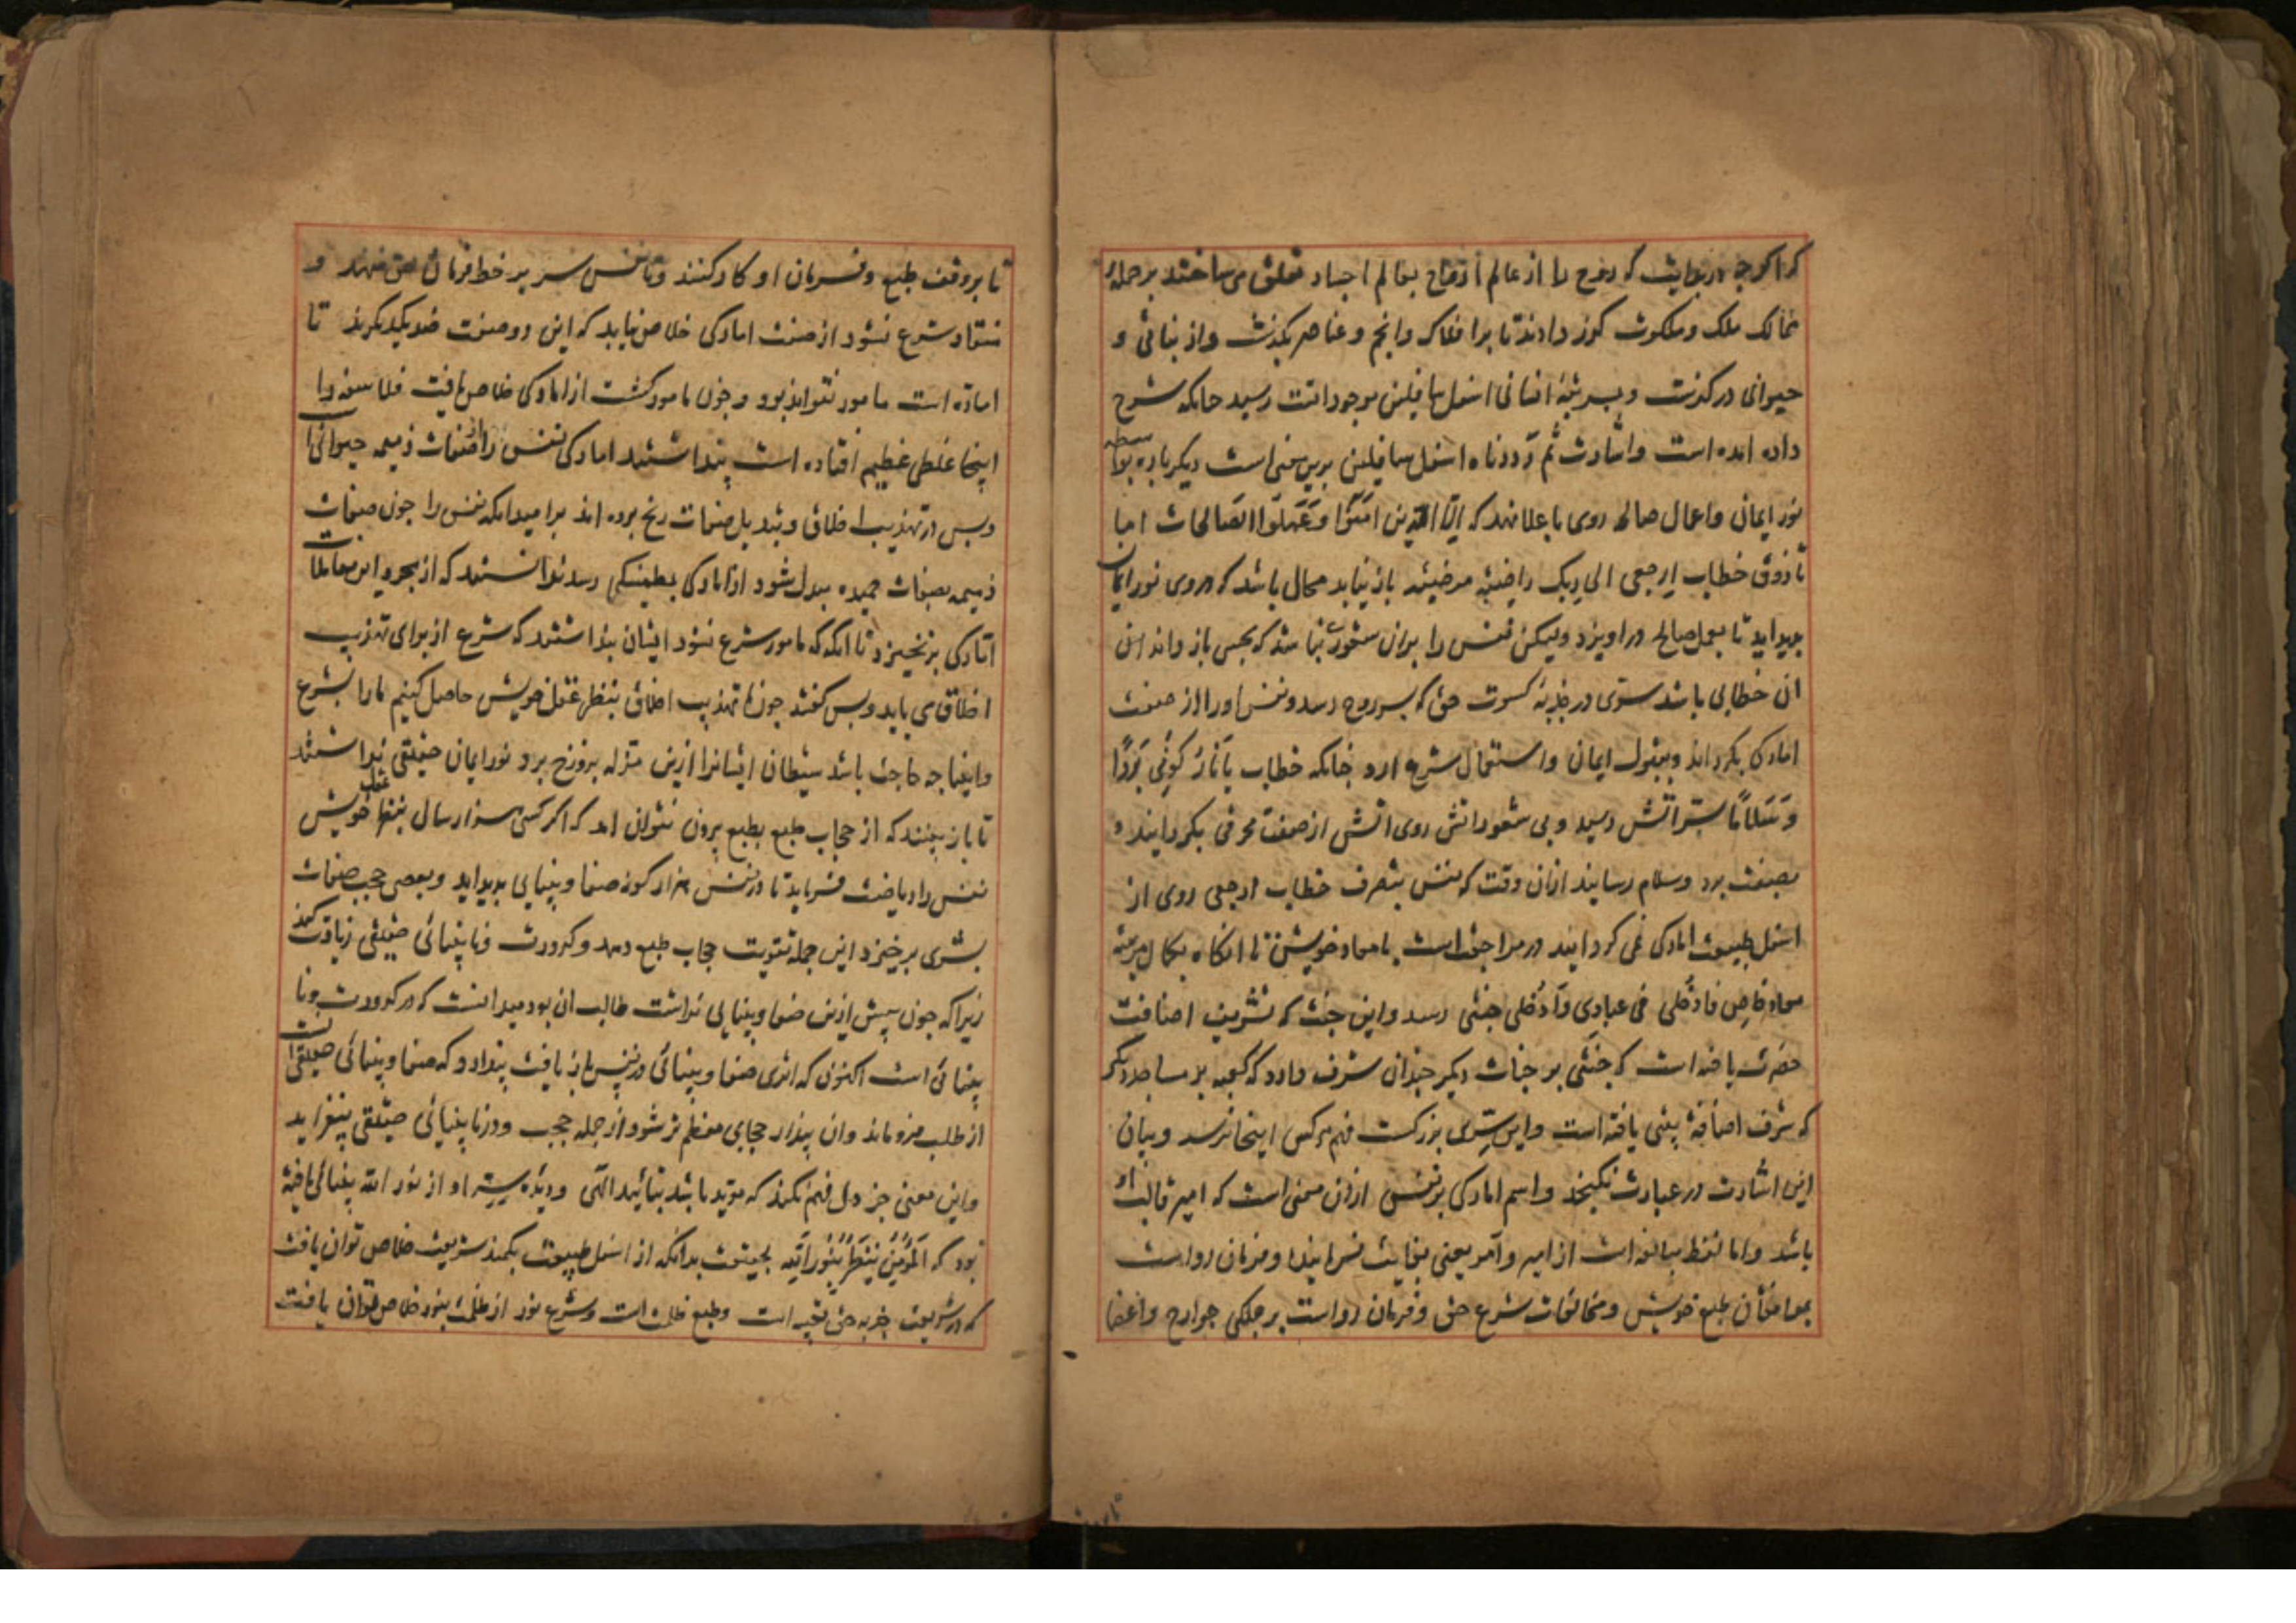 که اگرچه در بدایت که روح را از عالم ارواح بعالم اجساد تعلق می ساختند بر جمله
ممالک ملک و ملکوت گذر دادند تا بر افلاک و انجم و عناصر بگذشت و از نباتی و
حیوانی در گذشت و بمرتبه انسانی اسفل سافلین موجودات رسید چنانکه شرح
داده امده است و اشارت ثم رددناه اسفل سافلین برین معنی است دیگر باره بواسطه
نور ایمان و اعمال صالحه روی باعلا نهد که الا الذین امنوا وعملوا الصالحات اما
تا ذوق خطاب ارجعی الی ربک راضیة مرضیة باز نیابد محال باشد که در وی نور ایمان
پدید اید تا بعمل صالح در اویزد ولیکن نفس را بران شعور نباشد که بحس باز داند ان
ان خطابی باشد سری در جذبه کسوت حق که بسر روح رسد و نفس او را از صفت
امارگی بگرداند و بقبول ایمان و استعمال شرع ارد چنانکه خطاب یا نار کونی بردا
وسلاما بسر اتش رسید و بی شعور اتش روی اتش از صفت محرقی بگردانید و
بصفت برد و سلام رسانید ازان وقت که نفس بتصرف خطاب ارجعی روی از
اسفل طبیعت امارگی می گرداند در مراجعت است با معاد خویش تا انگاه بکمال مرتبه
معاد خاص فادخلی فی عبادی وادخلی جنتی رسد و این جنت که تشریف اضافت
حضرت یافته است که جنتی بر جنات دیگر چندان شرف دارد که کعبه بر مساجد دیگر
که شرف اضافة بیتی یافته است و این سری بزرگست فهم هرکس اینجا نرسد و بیان
این اشارت در عبارت نگنجد و اسم امارگی بر نفس ازان معنی است که امیر قالب او
باشد و اما لفظ مبالغه است از امیر و آمر یعنی بغایت فرماینده و فرمان رواست
بموافقان طبع خویش و مخالفات شرع حق و فرمان رواست بر جملگی جوارح و اعضا
تا بر وفق طبع و فرمان او کار کنند و تا نفس سر بر خط فرمان حق ننهد و
منقاد شرع نشود از صفت امارگی خلاص نیابد که این دو صفت ضد یکدیگرند تا
اماره است مامور نتواند بود و چون مامور گشت از امارگی خلاص یافت فلاسفه را
اینجا غلطی عظیم افتاده است پنداشتند امارگی نفس را از صفات ذمیمه حیوانی است
و بس در تهذیب اخلاق و تبدیل صفات رنج برده اند بر امید انکه نفس را چون صفات
ذمیمه بصفات حمیده مبدل شود از امارگی بمطمئنگی رسد ندانستند که از مجرد این معاملات
امارگی برنخیزد تا انگه که مامور شرع نشود ایشان پنداشتند که شرع از برای تهذیب
اخلاق می باید و بس گفتند چون ما تهذیب اخلاق بنظر عقل خویش حاصل کنیم ما را بشرع
و انبیا چه حاجت باشد شیطان ایشانرا ازین منزله بدوزخ برد و نور ایمان حقیقی نداشتند
تا باز بینند که از حجاب طبع بطبع بیرون نتوان امد که اگر کسی هزار سال بنظر عقل خویش
نفس را ریاضت فرماید تا در نفس هزار گونه صفا و بینایی پدید اید و بعضی حجب صفات
بشری برخیزد این جمله تقویت حجاب طبع دهد و کدورت و نابینائی حقیقی زیادت کند
زیرا که چون پیش ازین صفا و بینایی نداشت طالب ان بود میدانست که در کدورت و نا
بینائی است اکنون که اثری صفا و بینائی در نفس باز یافت پندارد که صفا و بینائی حقیقی است
از طلب فرو ماند وان پندار حجابی معظم تر شود از جمله حجب و در نابینیائی حقیقی بیفزاید
و این معنی جز دل فهم نکند که موید باشد بتائید الهی و دیده سر او از نور الله بینائی یافته
بود که المؤمن ینظر بنور الله بحقیقت بدانکه از اسفل طبیعت بکمند شریعت خلاص توان یافت
که در شریعت جذبه حق تعبیه است و طبع ظلمت است و شرع نور از ظلمت بنور خلاص توان یافت